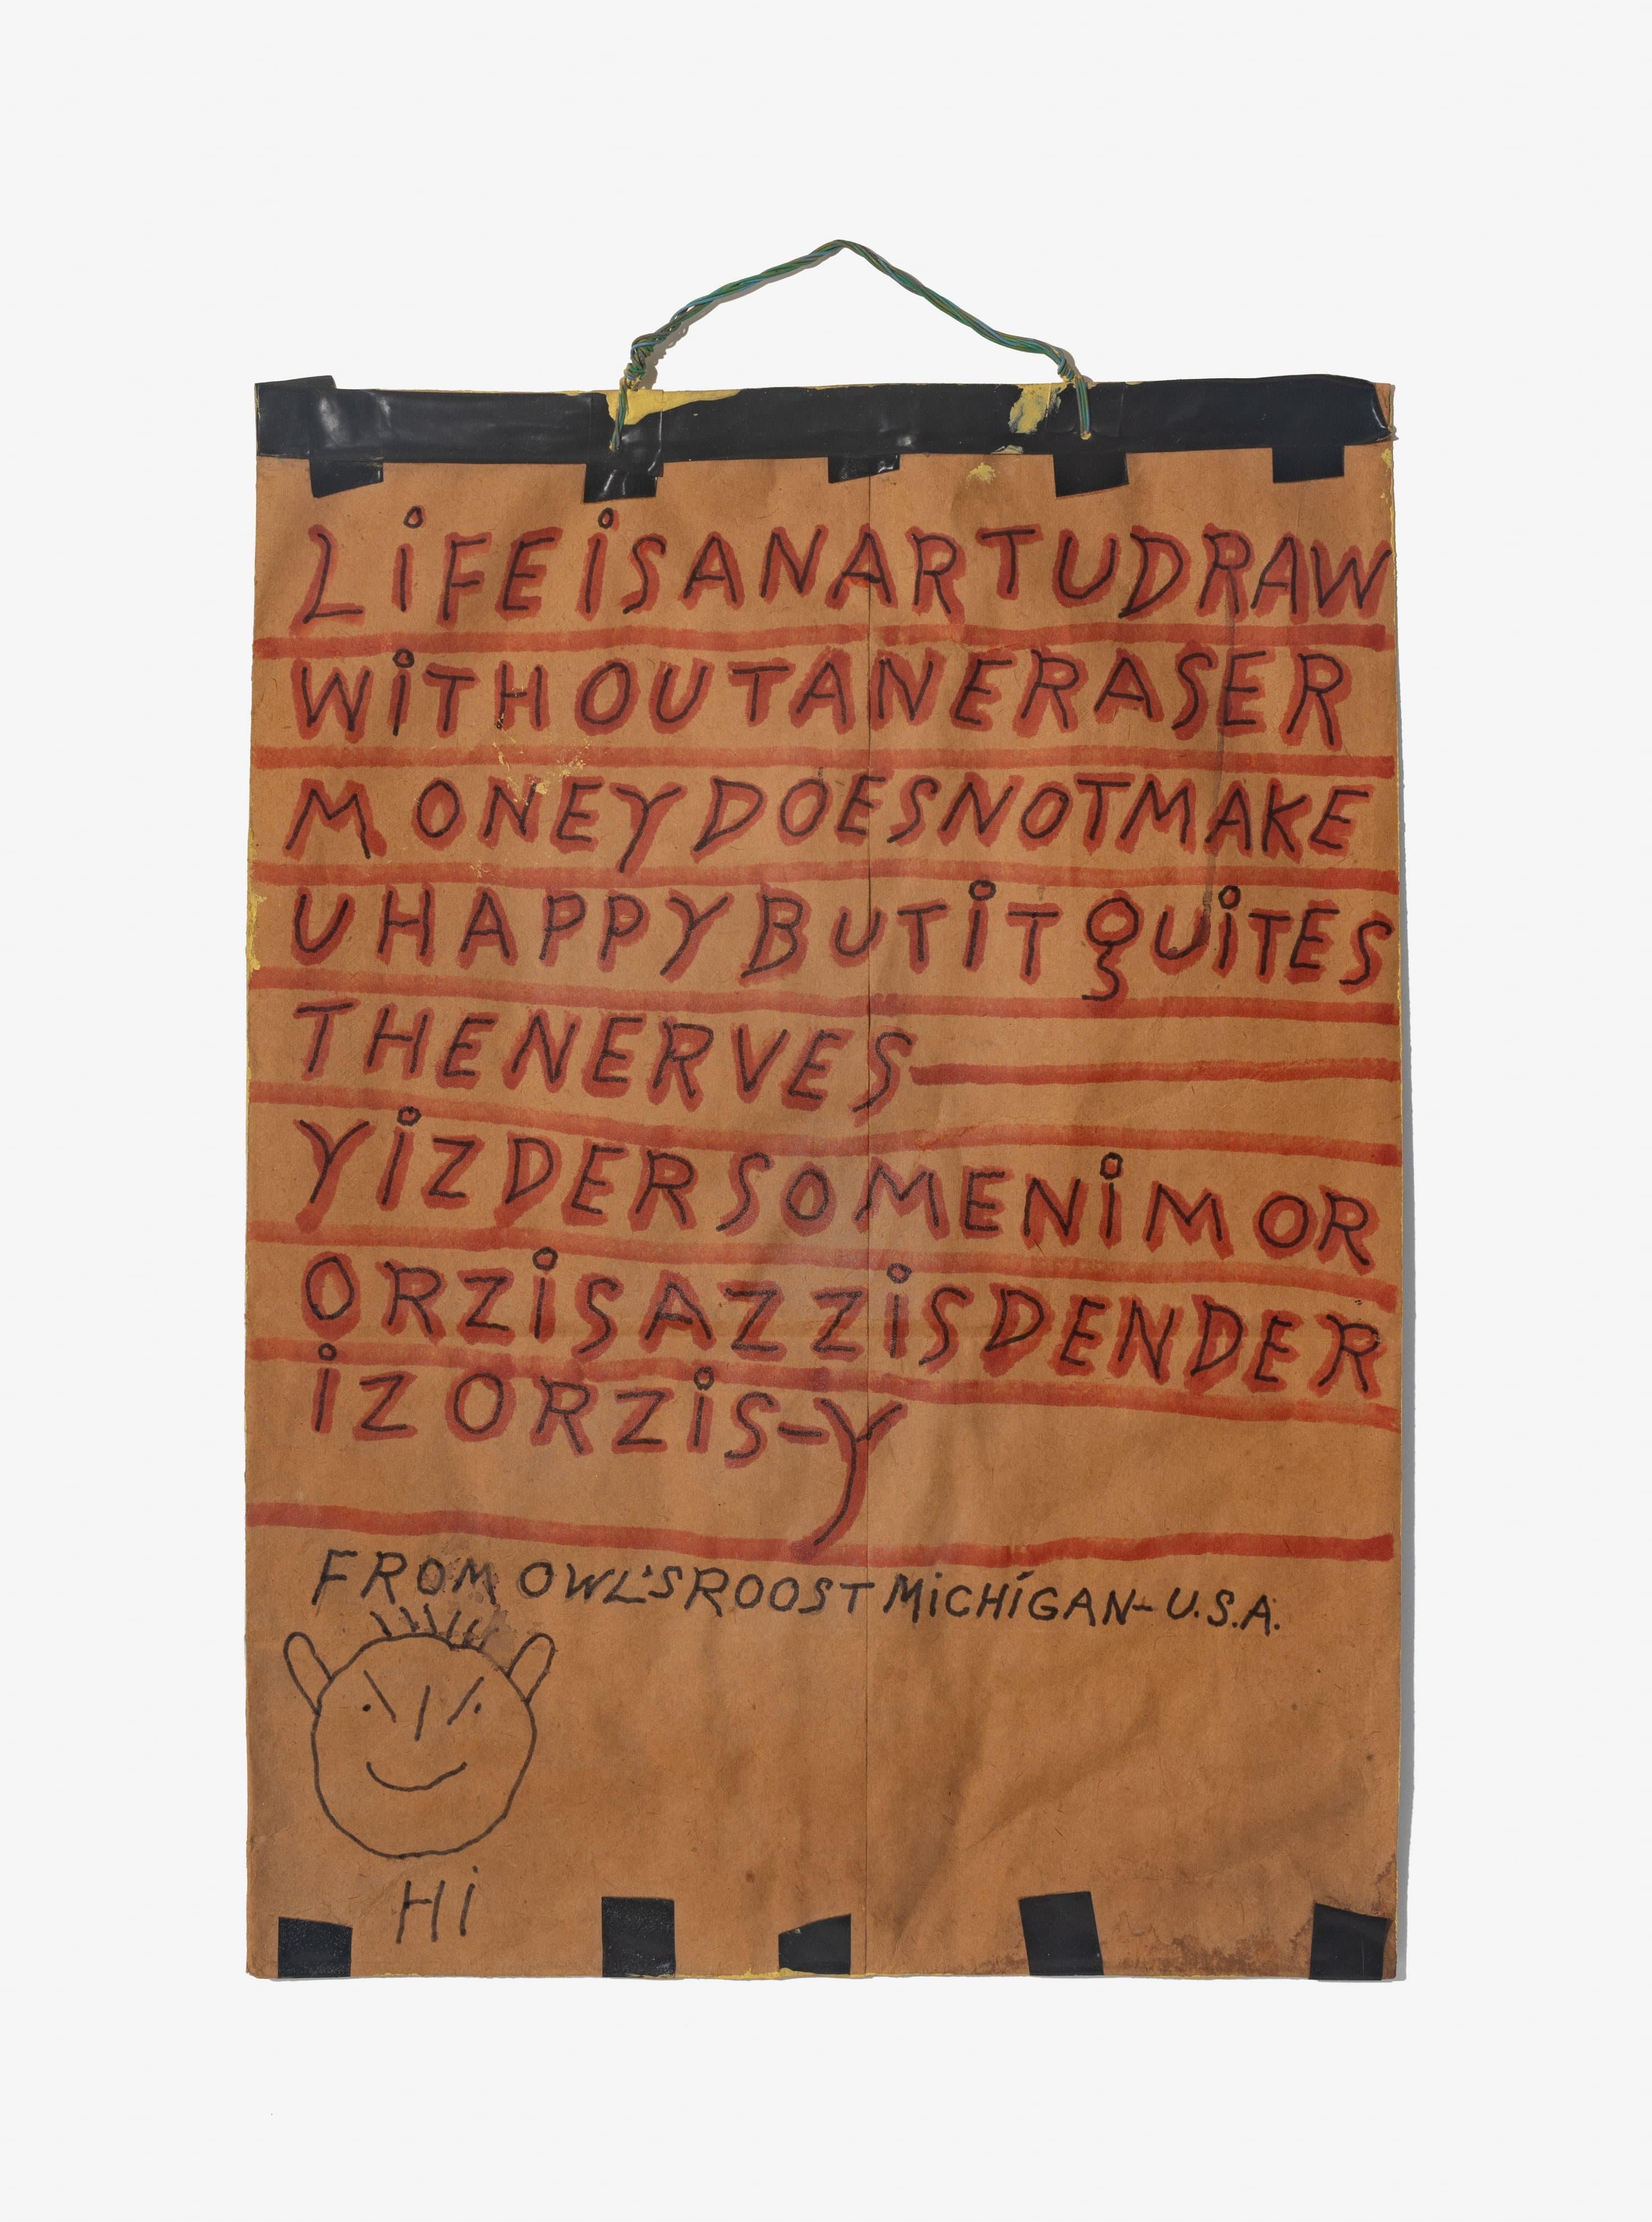 LiFEiSANARTUDRAW
WiTHOUTANERASER
MONEYDOESNOTMAKE
UHAPPYBUTiTQUiTES
THENERVES
YiZDERSOMENiMOR
ORZiSAZZiSDENDER
iZORZiS-Y
FROM OWL'SROOST MiCHiGAN-U.S.A.
Hi